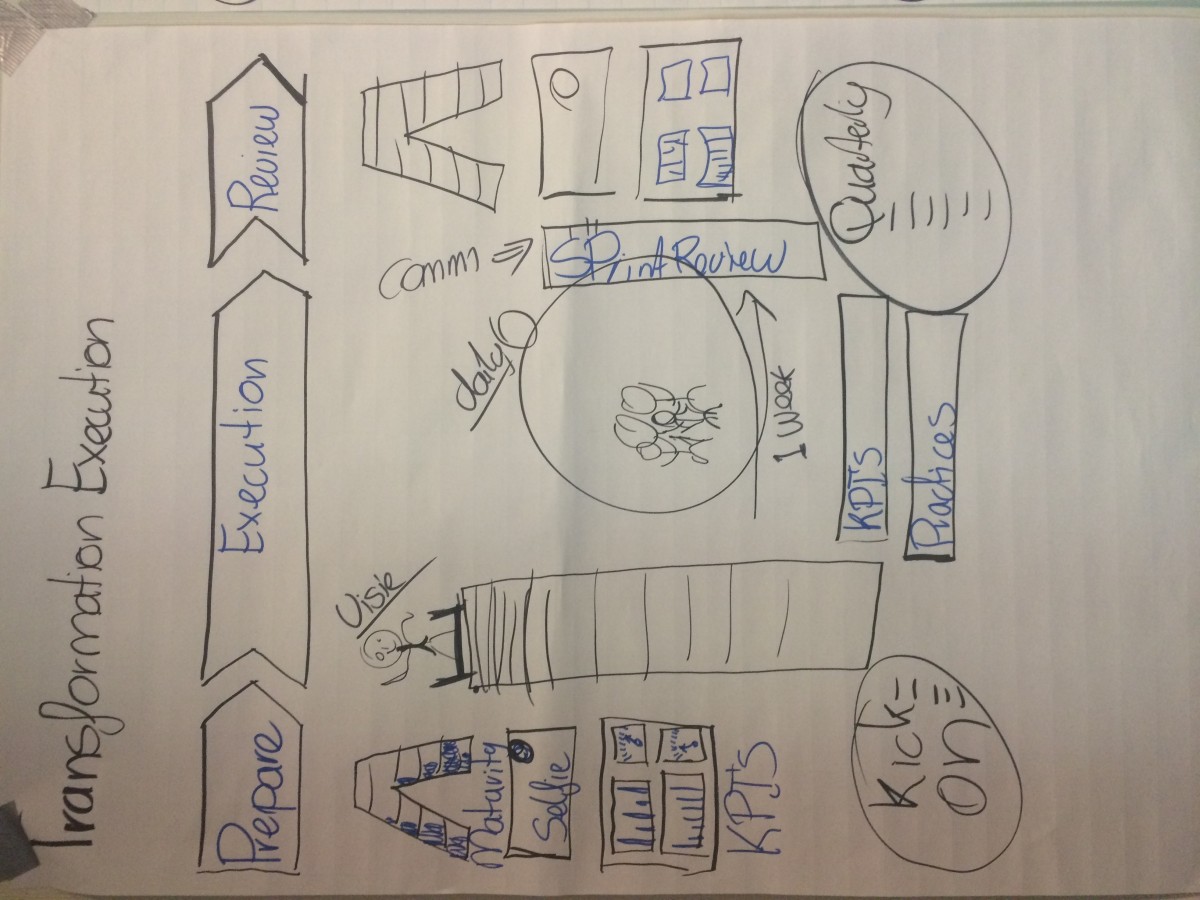 Transformation Execution
Prepare
Execution
Review
Maturity
Selfie
KPIS
Kick
On
Visie
daily
1 week
Comm
SPrint Review
KPIS
Practices
Quarterly